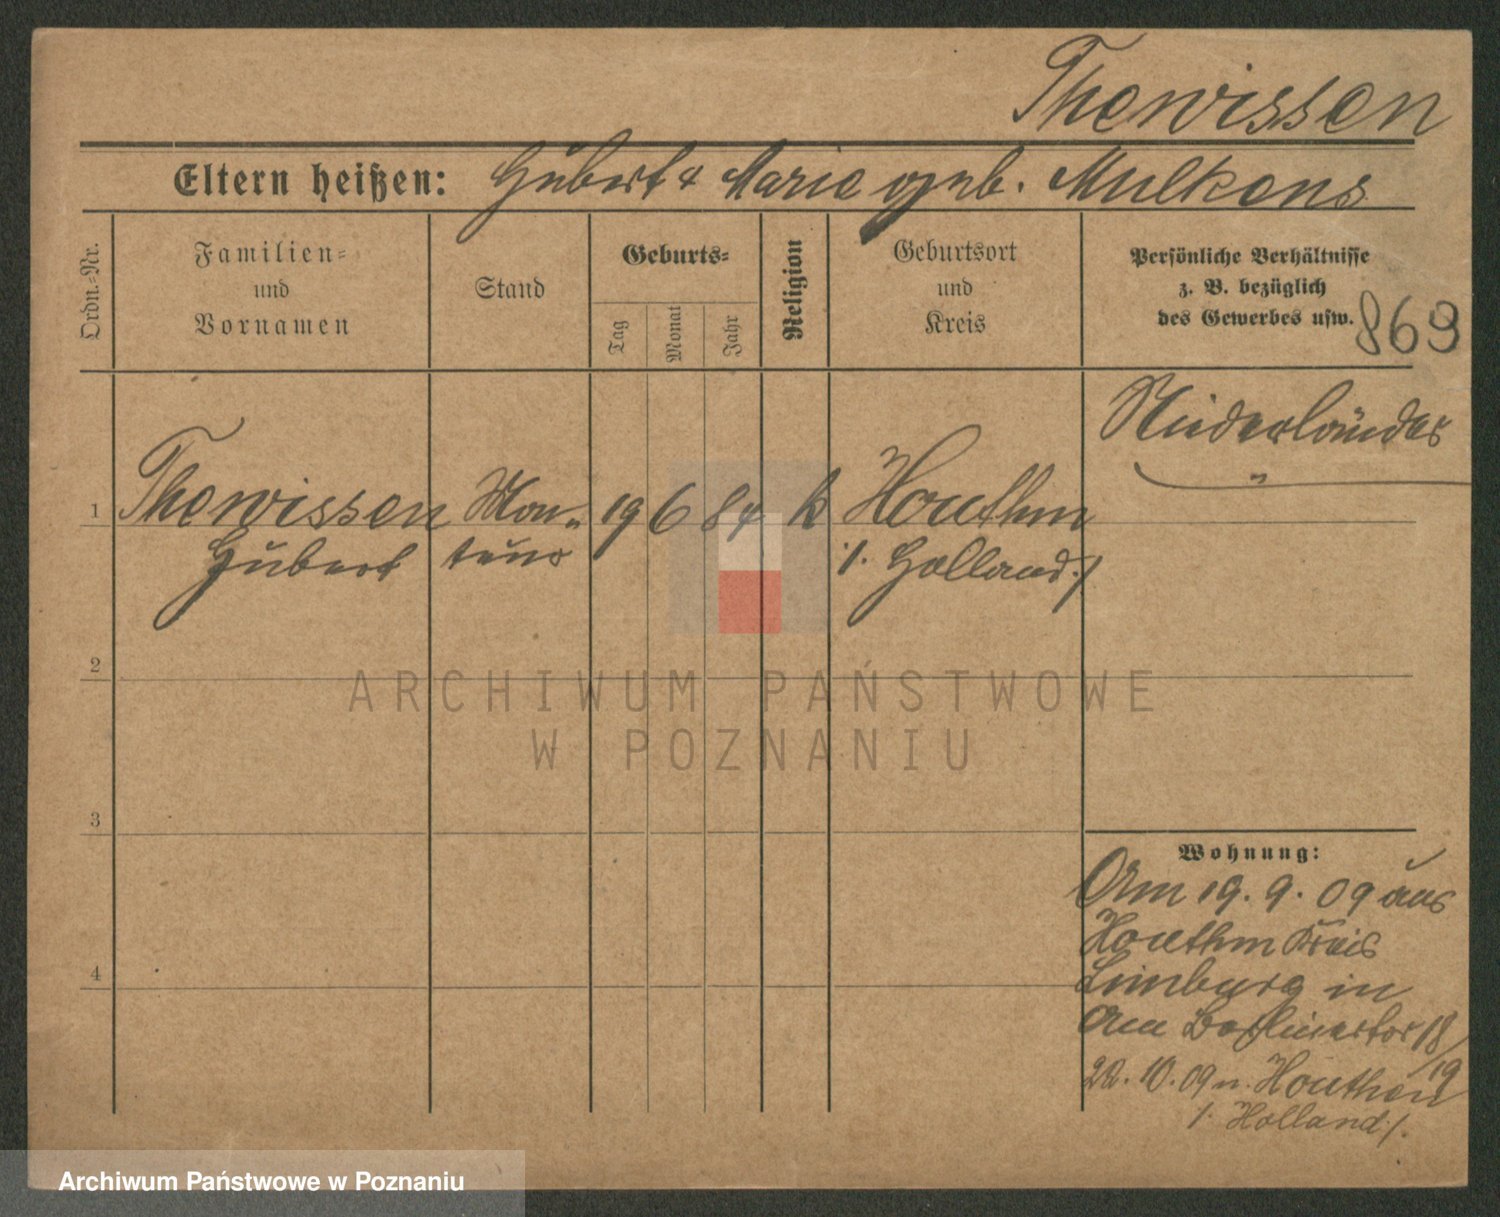 Thewissen
Eltern heißen: Hubert & Marie geb. Mulkens
Ordn.-Nr.
Familien-
und
Vornamen
Stand
Geburts-
Tag
Monat
Jahr
Religion
Geburtsort
und
Kreis
Persönliche Verhältnisse
z. B. bezüglich
des Gewerbes usw.
869
Niederländer
1 Thewissen Mon- 19 6 84 k Houthm
Hubert teur /. Holland./
2
3
4
Wohnung:
Am 19. 9. 09 aus
Houthm Kreis
Limburg in
Am Berlinertor 18/19
22. 10. 09 n. Houthem
/. Holland./.
ARCHIWUM PAŃSTWOWE
W POZNANIU
Archiwum Państwowe w Poznaniu